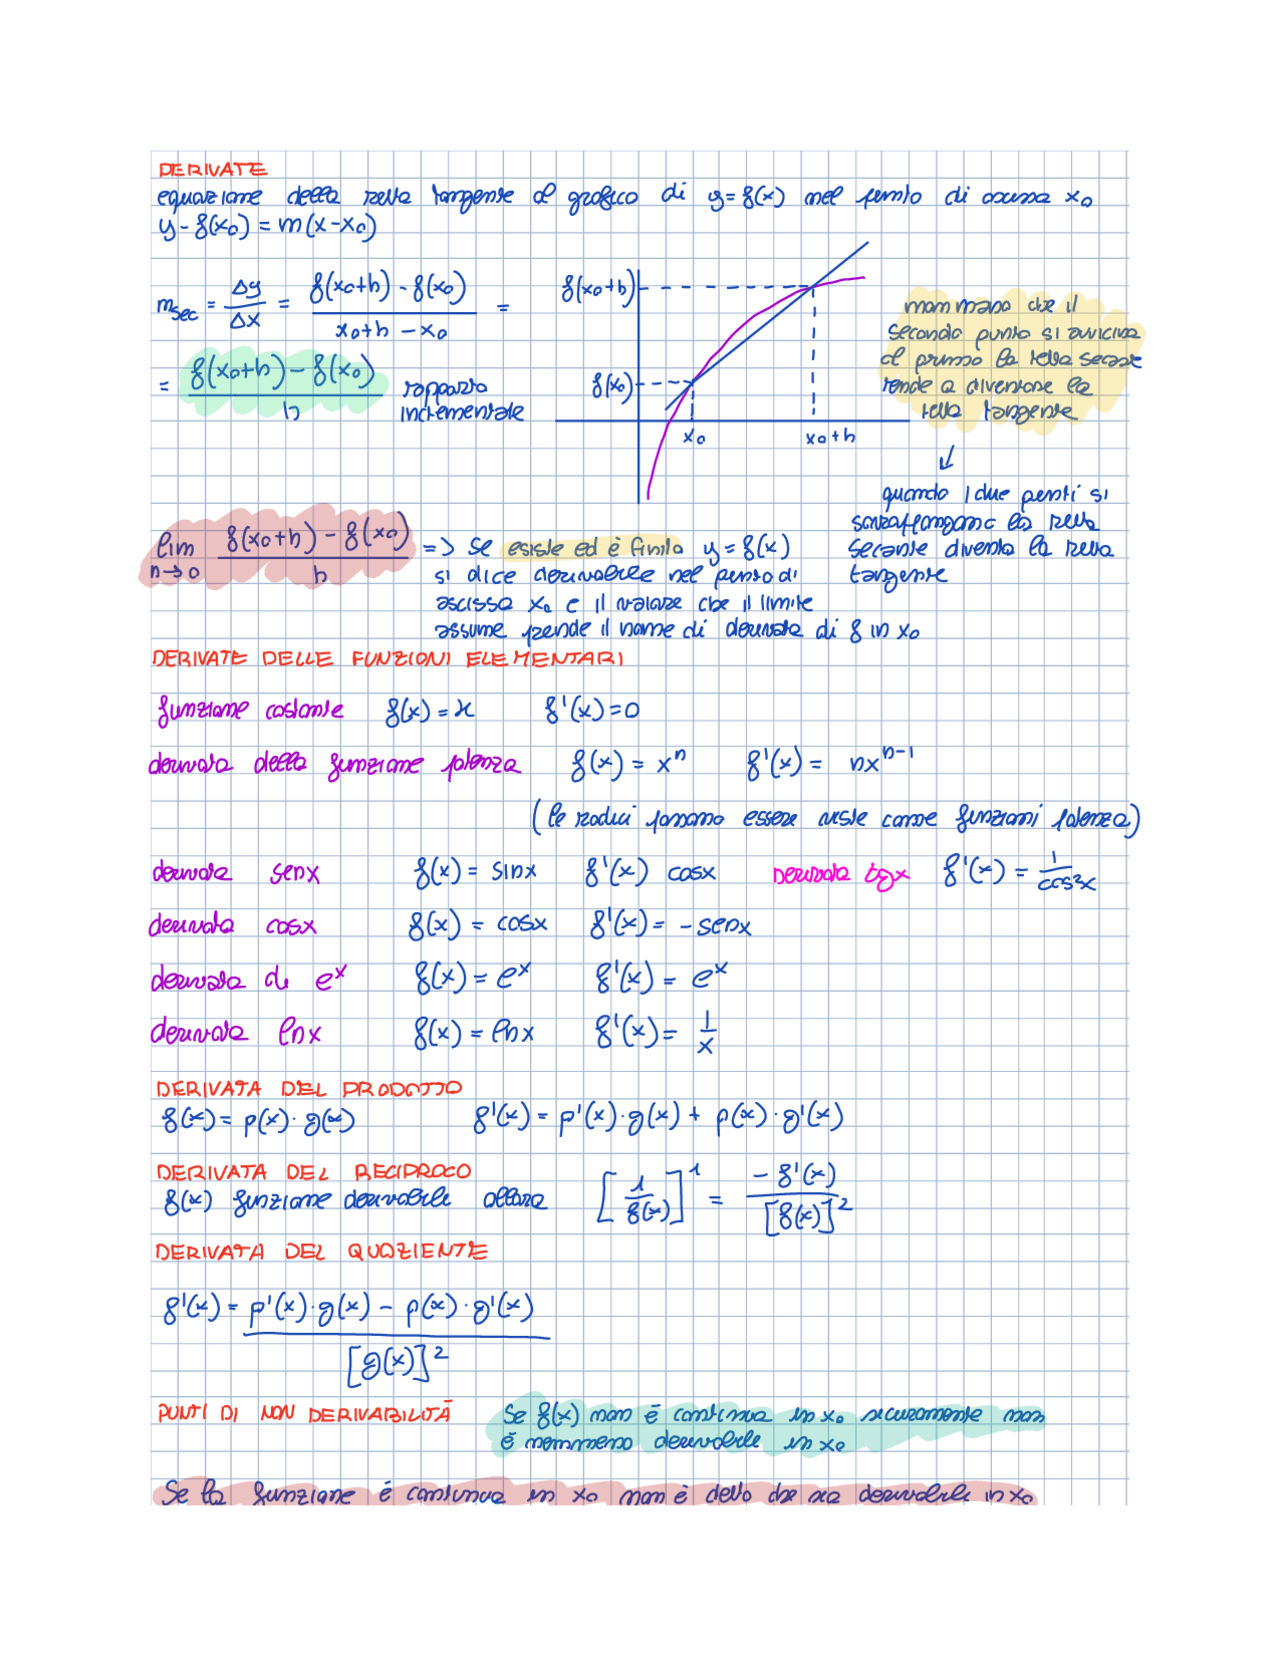 DERIVATE
equazione della retta tangente al grafico di y = f(x) nel punto di ascissa x₀
y - f(x₀) = m(x-x₀)
m_sec = Δy/Δx = (f(x₀+h) - f(x₀))/(x₀+h - x₀) =
= (f(x₀+h) - f(x₀))/h rapporto incrementale
f(x₀+h)
f(x₀)
x₀
x₀+h
man mano che il
secondo punto si avvicina
al primo la retta secante
tende a diventare la
retta tangente
↓
quando i due punti si
sovrappongono la retta
secante diventa la retta
tangente
lim n→0 (f(x₀+h) - f(x₀))/h => se esiste ed è finito y = f(x)
si dice derivabile nel punto di
ascissa x₀ e il valore che il limite
assume prende il nome di derivata di f in x₀
DERIVATE DELLE FUNZIONI ELEMENTARI
funzione costante f(x) = k f'(x) = 0
derivata della funzione potenza f(x) = xⁿ f'(x) = nxⁿ⁻¹
(le radici possono essere viste come funzioni potenza)
derivata senx f(x) = sinx f'(x) cosx derivata tgx f'(x) = 1/cos²x
derivata cosx f(x) = cosx f'(x) = -senx
derivata di eˣ f(x) = eˣ f'(x) = eˣ
derivata lnx f(x) = lnx f'(x) = 1/x
DERIVATA DEL PRODOTTO
f(x) = p(x)·g(x) f'(x) = p'(x)·g(x) + p(x)·g'(x)
DERIVATA DEL RECIPROCO
f(x) funzione derivabile allora [1/f(x)]' = -f'(x)/[f(x)]²
DERIVATA DEL QUOZIENTE
f'(x) = (p'(x)·g(x) - p(x)·g'(x))/[g(x)]²
PUNTI DI NON DERIVABILITÀ Se f(x) non è continua in x₀ sicuramente non
è nemmeno derivabile in x₀
Se la funzione è continua in x₀ non è detto che sia derivabile in x₀